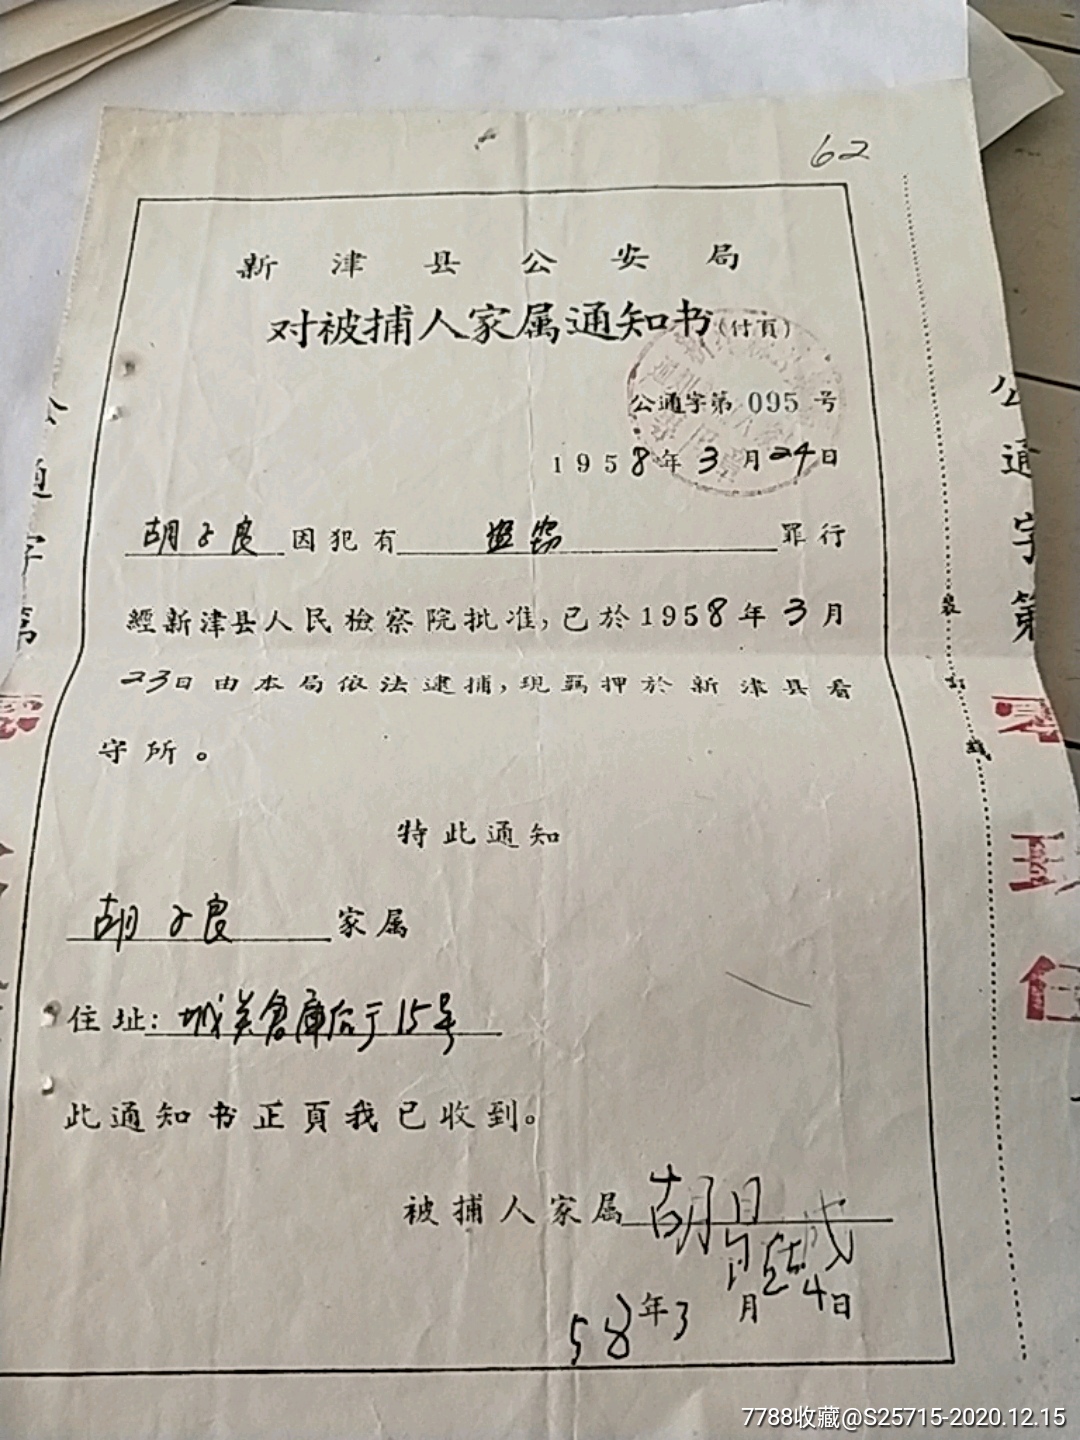 62
新津县公安局
对被捕人家属通知书(付頁)
公通字第 095 号
1958年3月24日
胡子良因犯有 罪行
經新津县人民檢察院批准,已於1958年3月
23日由本局依法逮捕,現羁押於新津县看
守所。
特此通知
胡子良家属
住址:城关倉庫后于15号
此通知书正頁我已收到。
被捕人家属胡
58年3月 4日
公通字第
公通字第
裝訂綫
7788收藏@S25715-2020.12.15